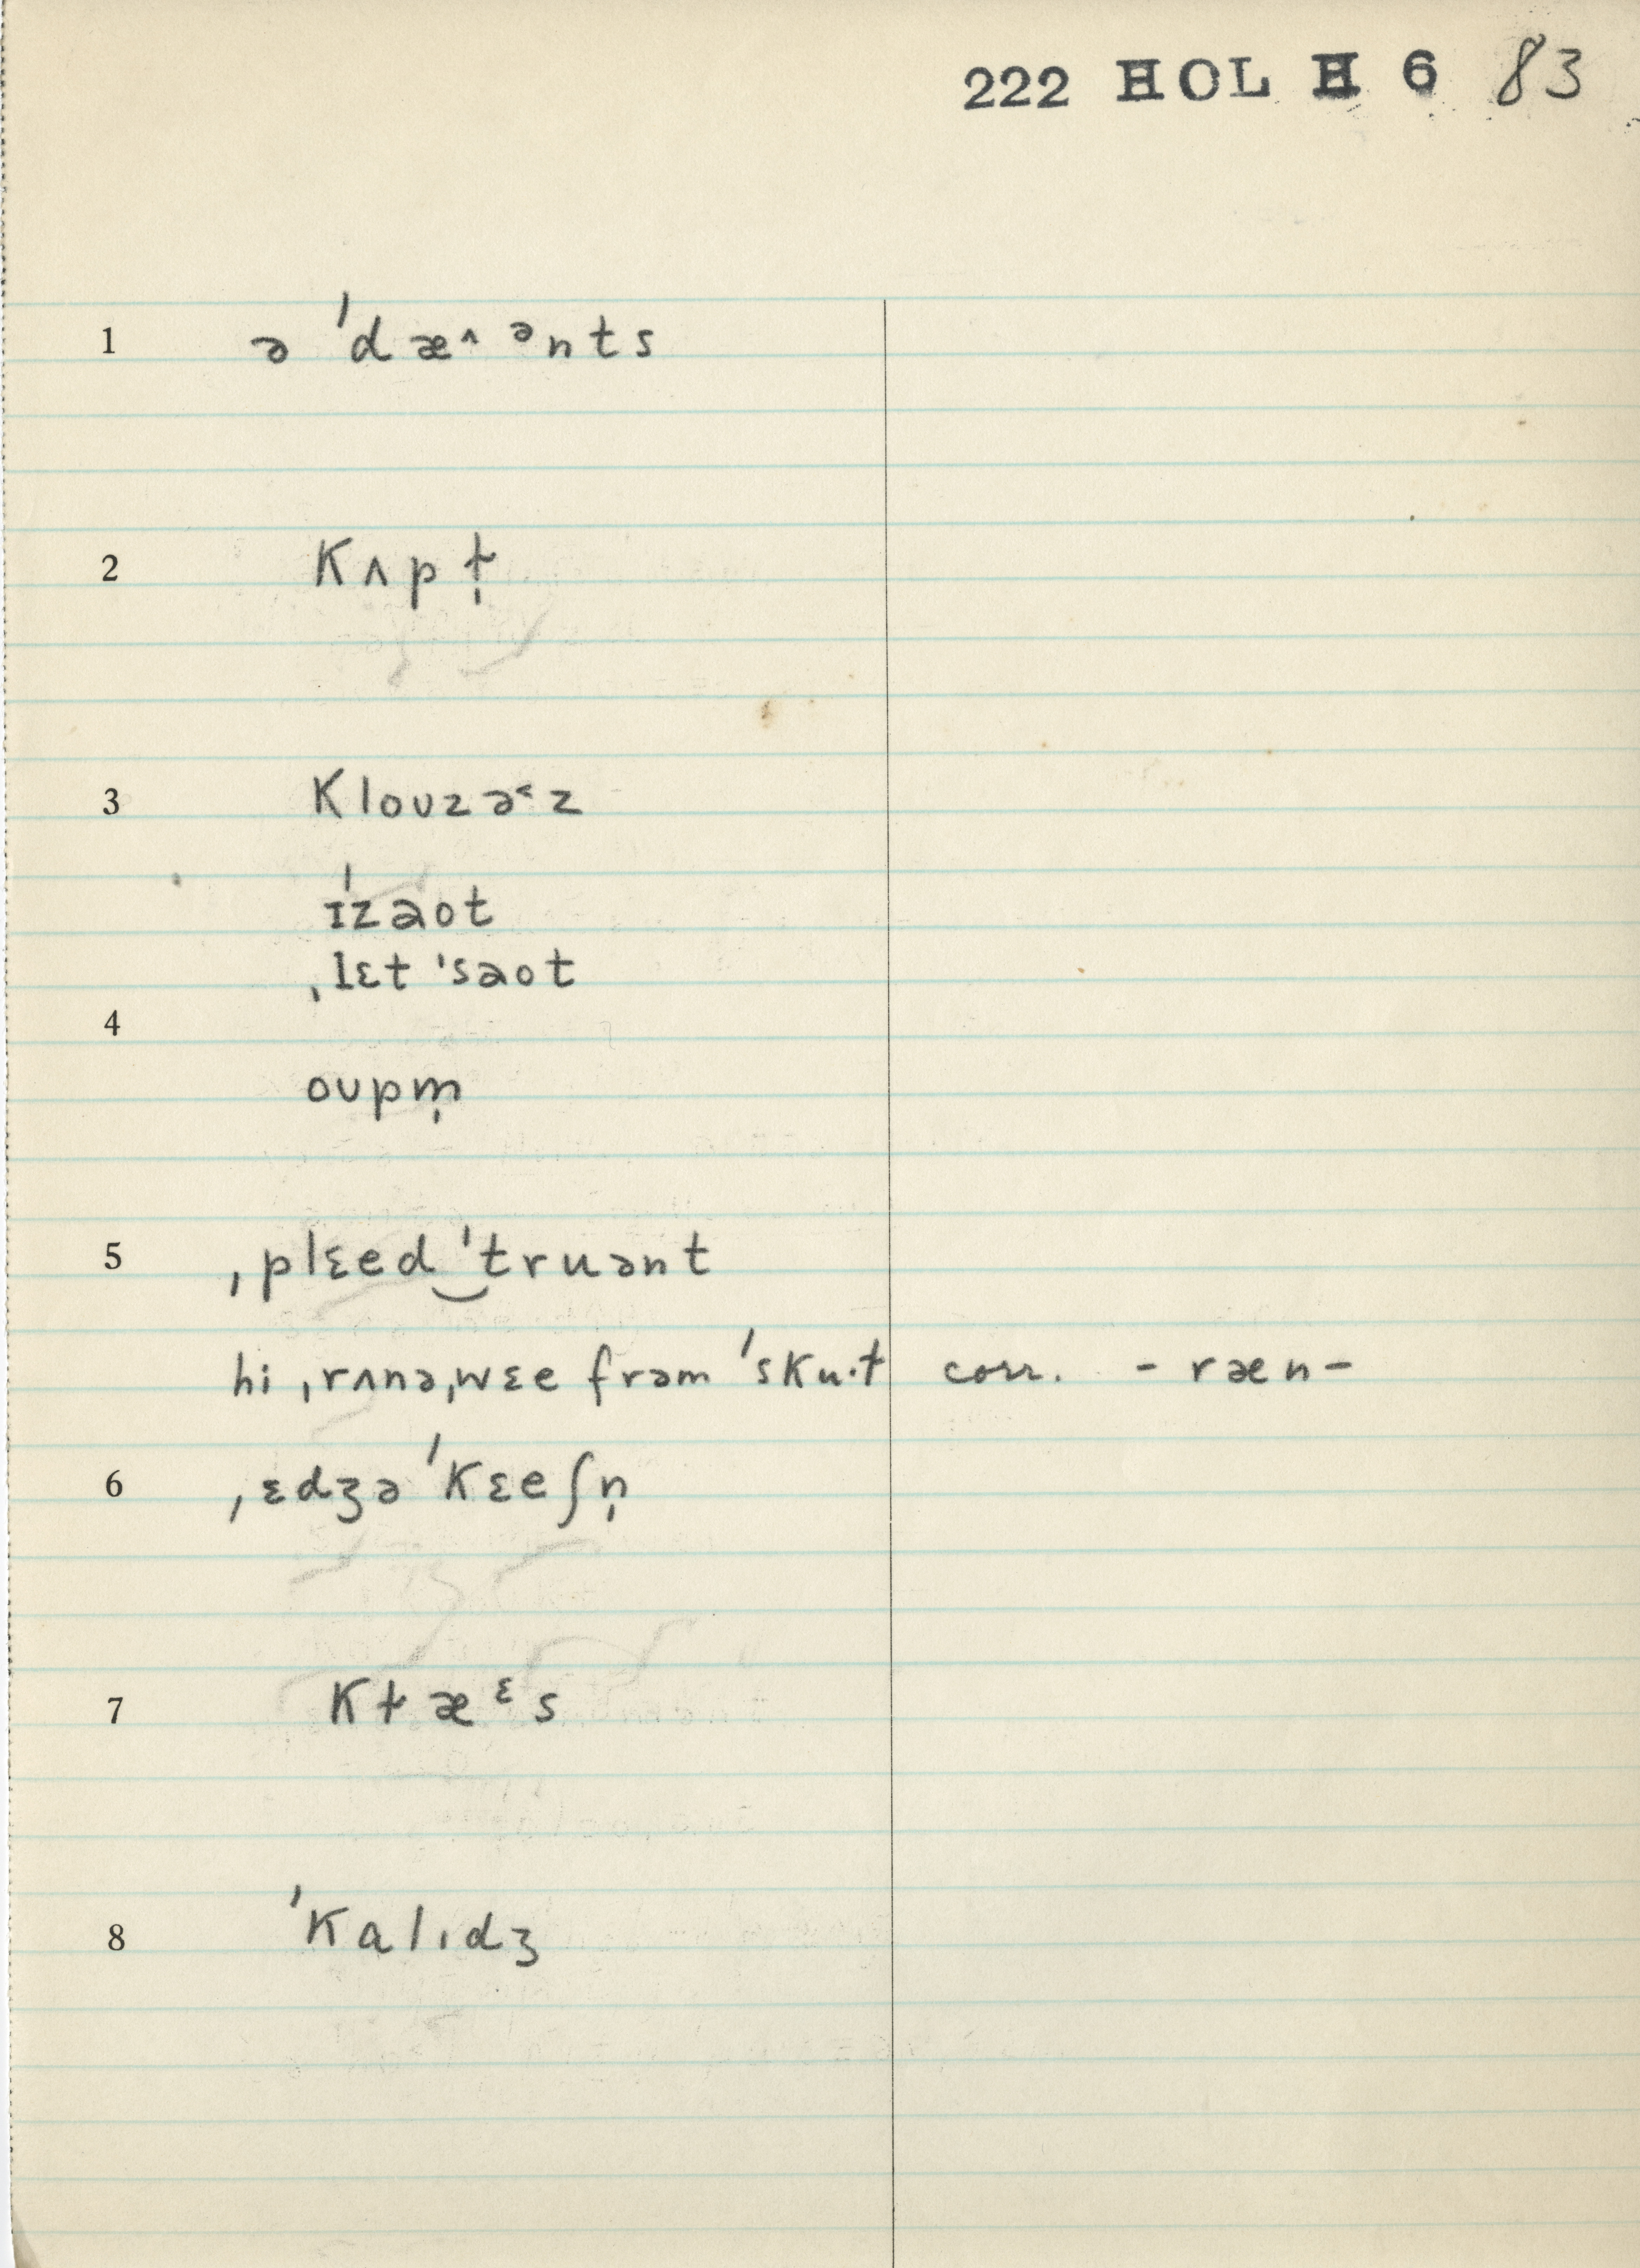 222 HOL H 6 83
1 ə ˈdæ^ ᵊnts
2 Kʌpɫ̩
3 Klouzə˂z
ˈɪzaot
ˌlɛt ˈsaot
4
oupm̩
5 ˌplɛed‿ˈtruənt
hi ˌrʌnəˌwɛe frəm ˈsKu·ɫ corr. - ræn -
6 ˌɛdʒə ˈKɛeʃn̩
7 Kɫæᵋs
8 ˈKalɪdʒ